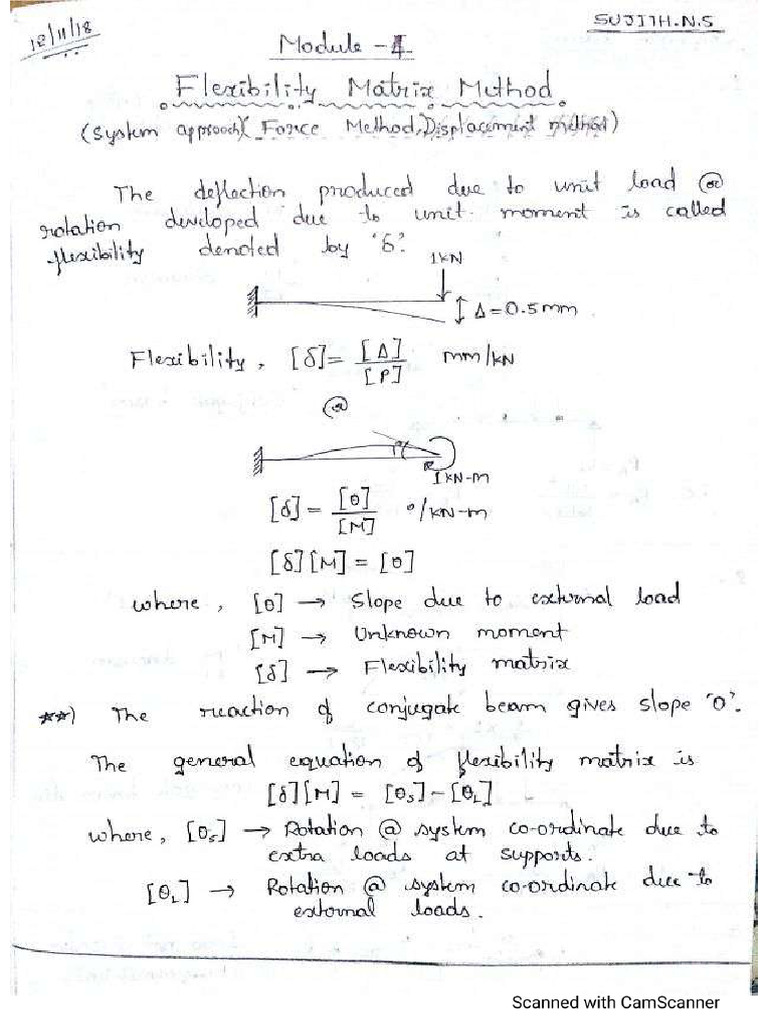 12/11/18
SUJITH.N.S
Module - 4
Flexibility Matrix Method
(System approach)(Force Method, Displacement method)
The deflection produced due to unit load (or)
rotation developed due to unit moment is called
flexibility denoted by 'δ'.
1kN
Δ = 0.5mm
Flexibility, [δ] = [Δ]/[P] mm/kN
(or)
θ
1 kN-m
[δ] = [θ]/[M] °/kN-m
[δ][M] = [θ]
where, [θ] → Slope due to external load
[M] → Unknown moment
[δ] → Flexibility matrix
**) The reaction of conjugate beam gives slope 'θ'.
The general equation of flexibility matrix is
[δ][M] = [θs] - [θL]
where, [θs] → Rotation @ system co-ordinate due to
extra loads at supports.
[θL] → Rotation @ system co-ordinate due to
external loads.
Scanned with CamScanner